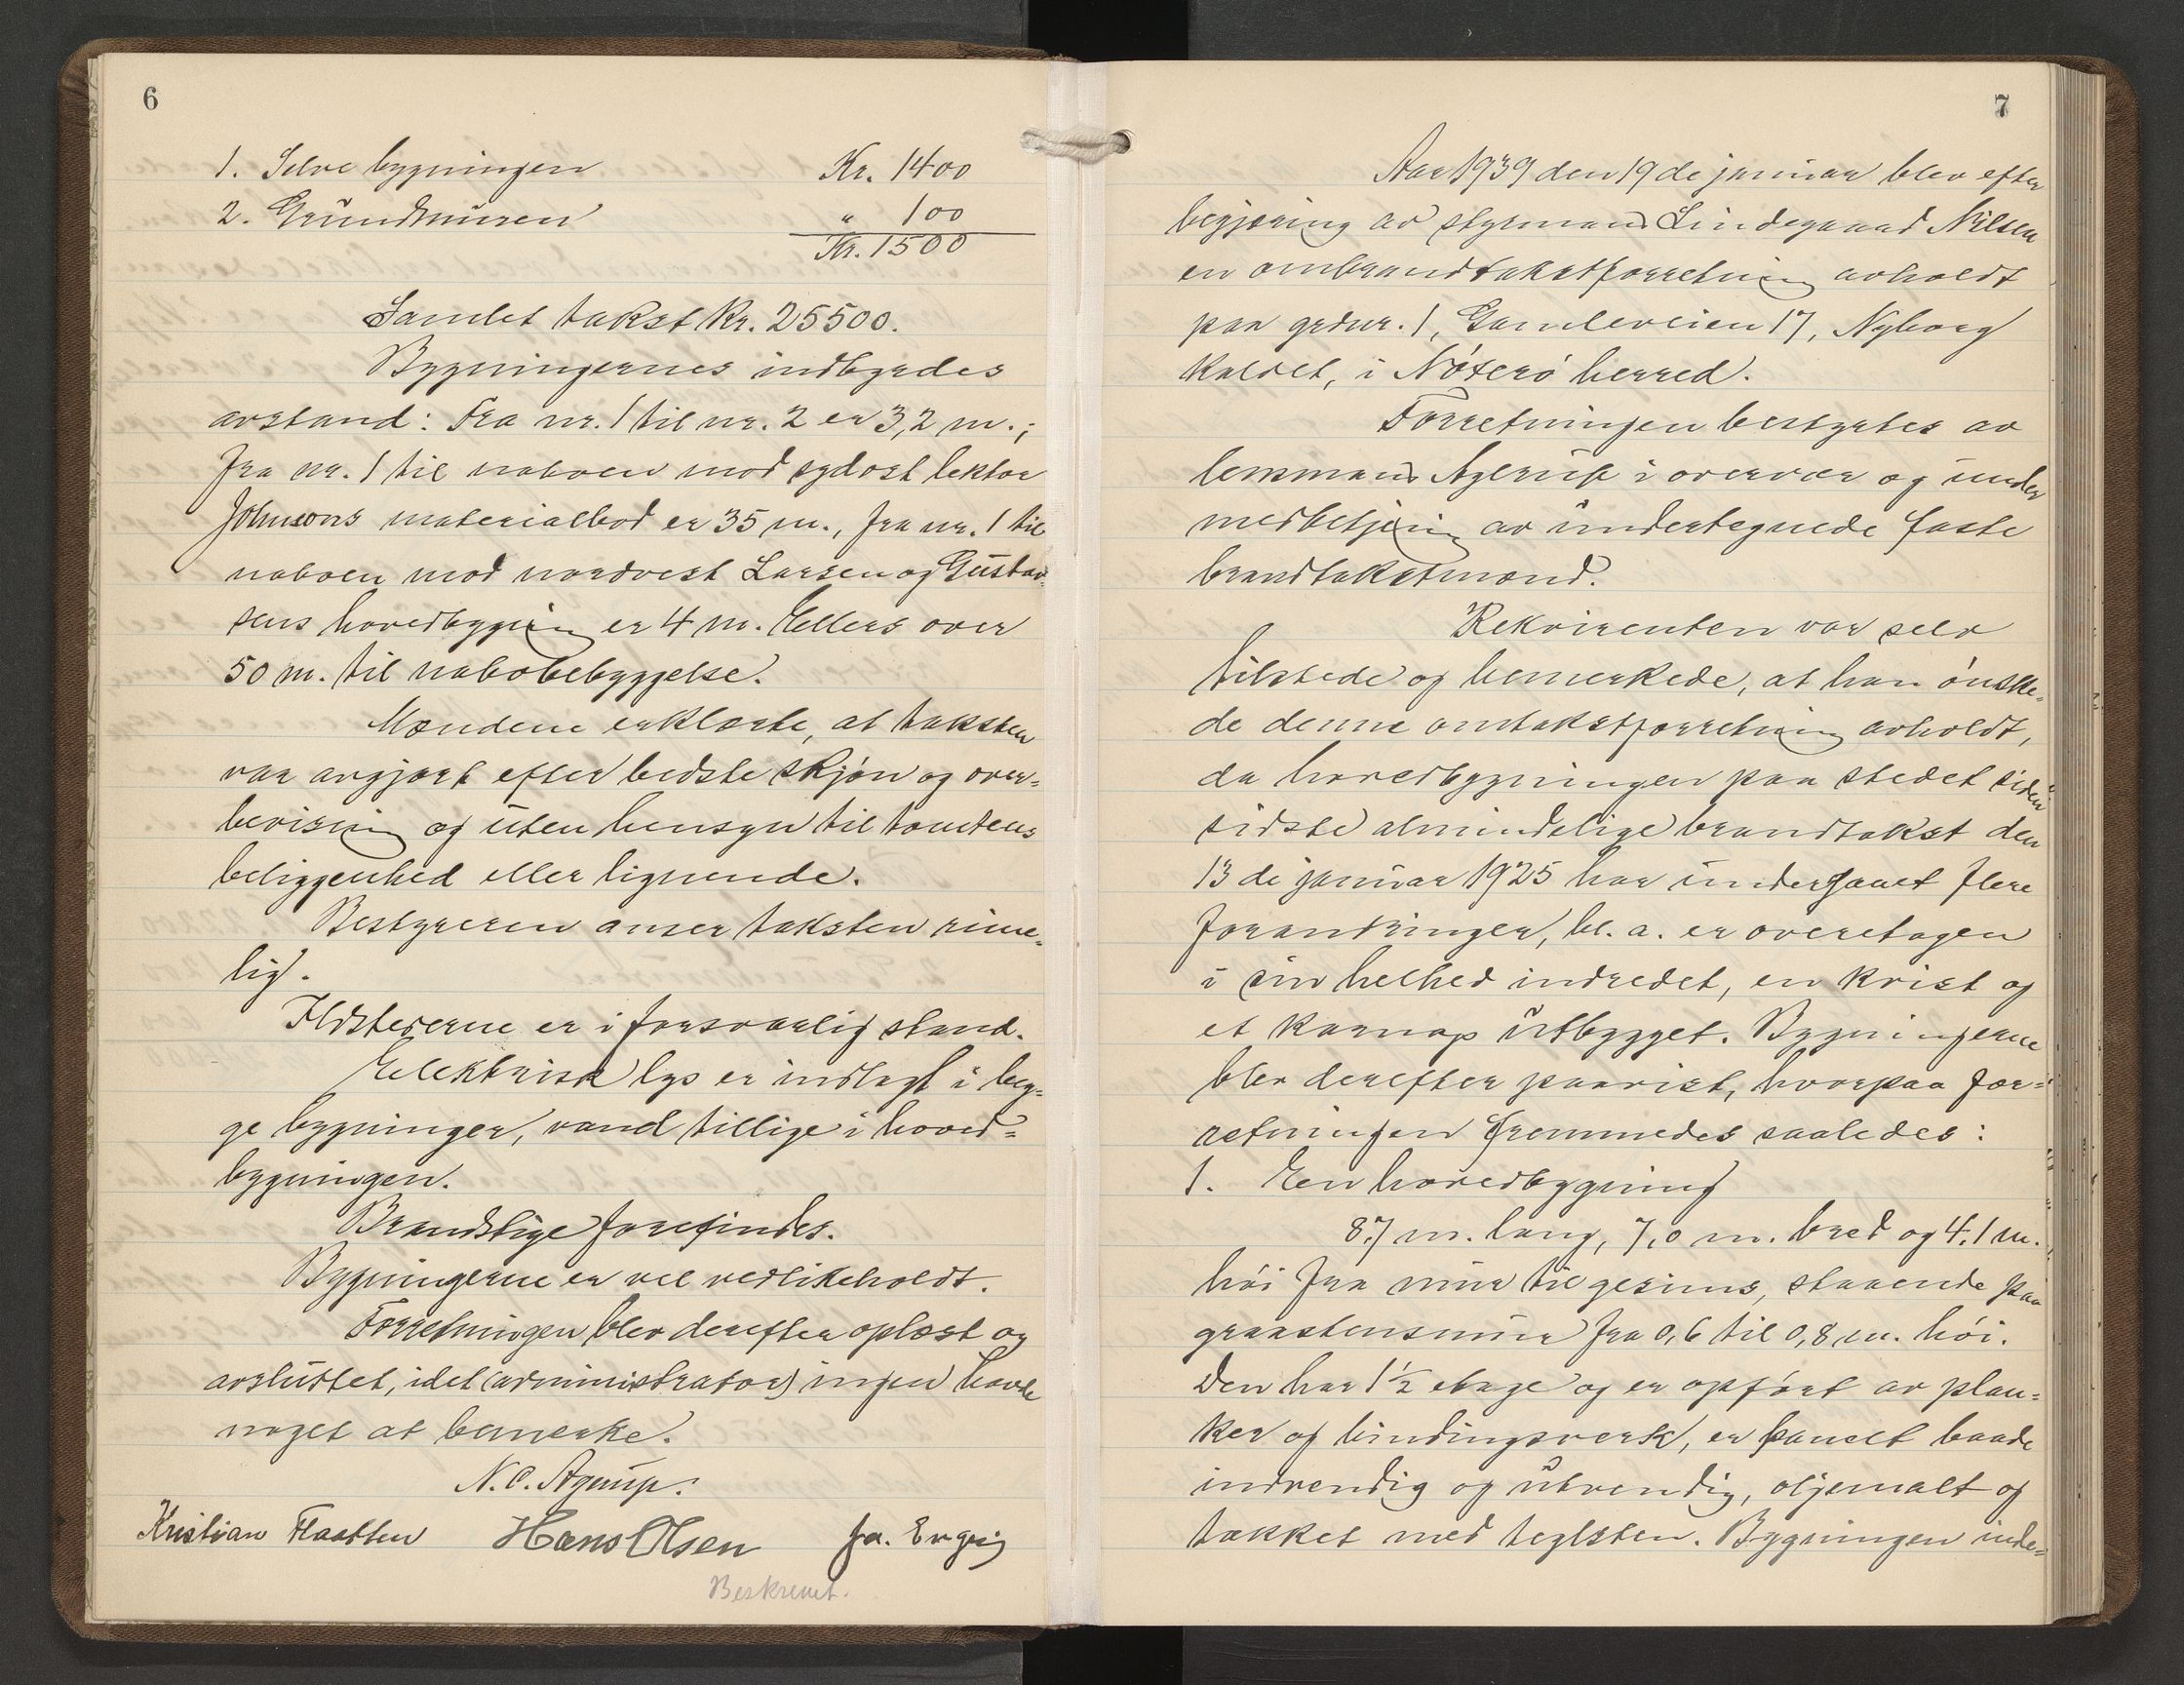 6
1. Selve bygningen Kr. 1400
2. Grundmuren " 100
Kr. 1500
Samlet takst kr. 25500.
Bygningernes indbyrdes
avstand: Fra nr. 1 til nr. 2 er 3,2 m.;
fra nr. 1 til naboen mod sydost lektor
Johnsons materialbod er 35 m., fra nr. 1 til
naboen mod nordvest Larsen og Gustav-
sens hovedbygning er 4 m. Ellers over
50 m. til nabobebyggelse.
Mændene erklærte, at taksten
var avgjort efter bedste skjøn og over-
bevisning og uten hensyn til tomtens
beliggenhed eller lignende.
Bestyreren anser taksten rime-
lig.
Ildstederne er i forsvarlig stand.
Elektrisk lys er indlagt i beg-
ge bygninger, vand tillige i hoved-
bygningen.
Brandstige forefindes.
Bygningerne er vel vedlikeholdt.
Forretningen blev derefter oplæst og
avsluttet, idet (administrator) ingen havde
noget at bemerke.
N. C. Agerup.
Kristian Flaatten Hans Olsen Ja. Engsig
Beskrevet.
7
Aar 1939 den 19 de januar blev efter
begjæring av styrmand Lindegaard Nilsen
en ombrandtakstforretning avholdt
paa grdnr. 1, Gamleveien 17, Nyborg
kaldet, i Nøterø herred.
Forretningen bestyrtes av
lensmand Agerup i overvær og under
medbetjening av undertegnede faste
brandtakstmænd.
Rekvirenten var selv
tilstede og bemerkede, at han ønske-
de denne omtakstforretning avholdt,
da hovedbygningen paa stedet siden
sidste almindelige brandtakst den
13 de januar 1925 har undergaaet flere
forandringer, bl. a. er overetagen
i sin helhed indredet, en kvist og
et karnap utbygget. Bygningerne
blev derefter paavist, hvorpaa for-
retningen fremmedes saaledes:
1. En hovedbygning
8,7 m. lang, 7,0 m. bred og 4,1 m.
høi fra mur til gesims, staaende paa
graastensmur fra 0,6 til 0,8 m. høi.
Den har 1½ etage og er opført av plan-
ker og bindingsverk, er panelt baade
indvendig og utvendig, oljemalt og
tækket med teglsten. Bygningen inde-